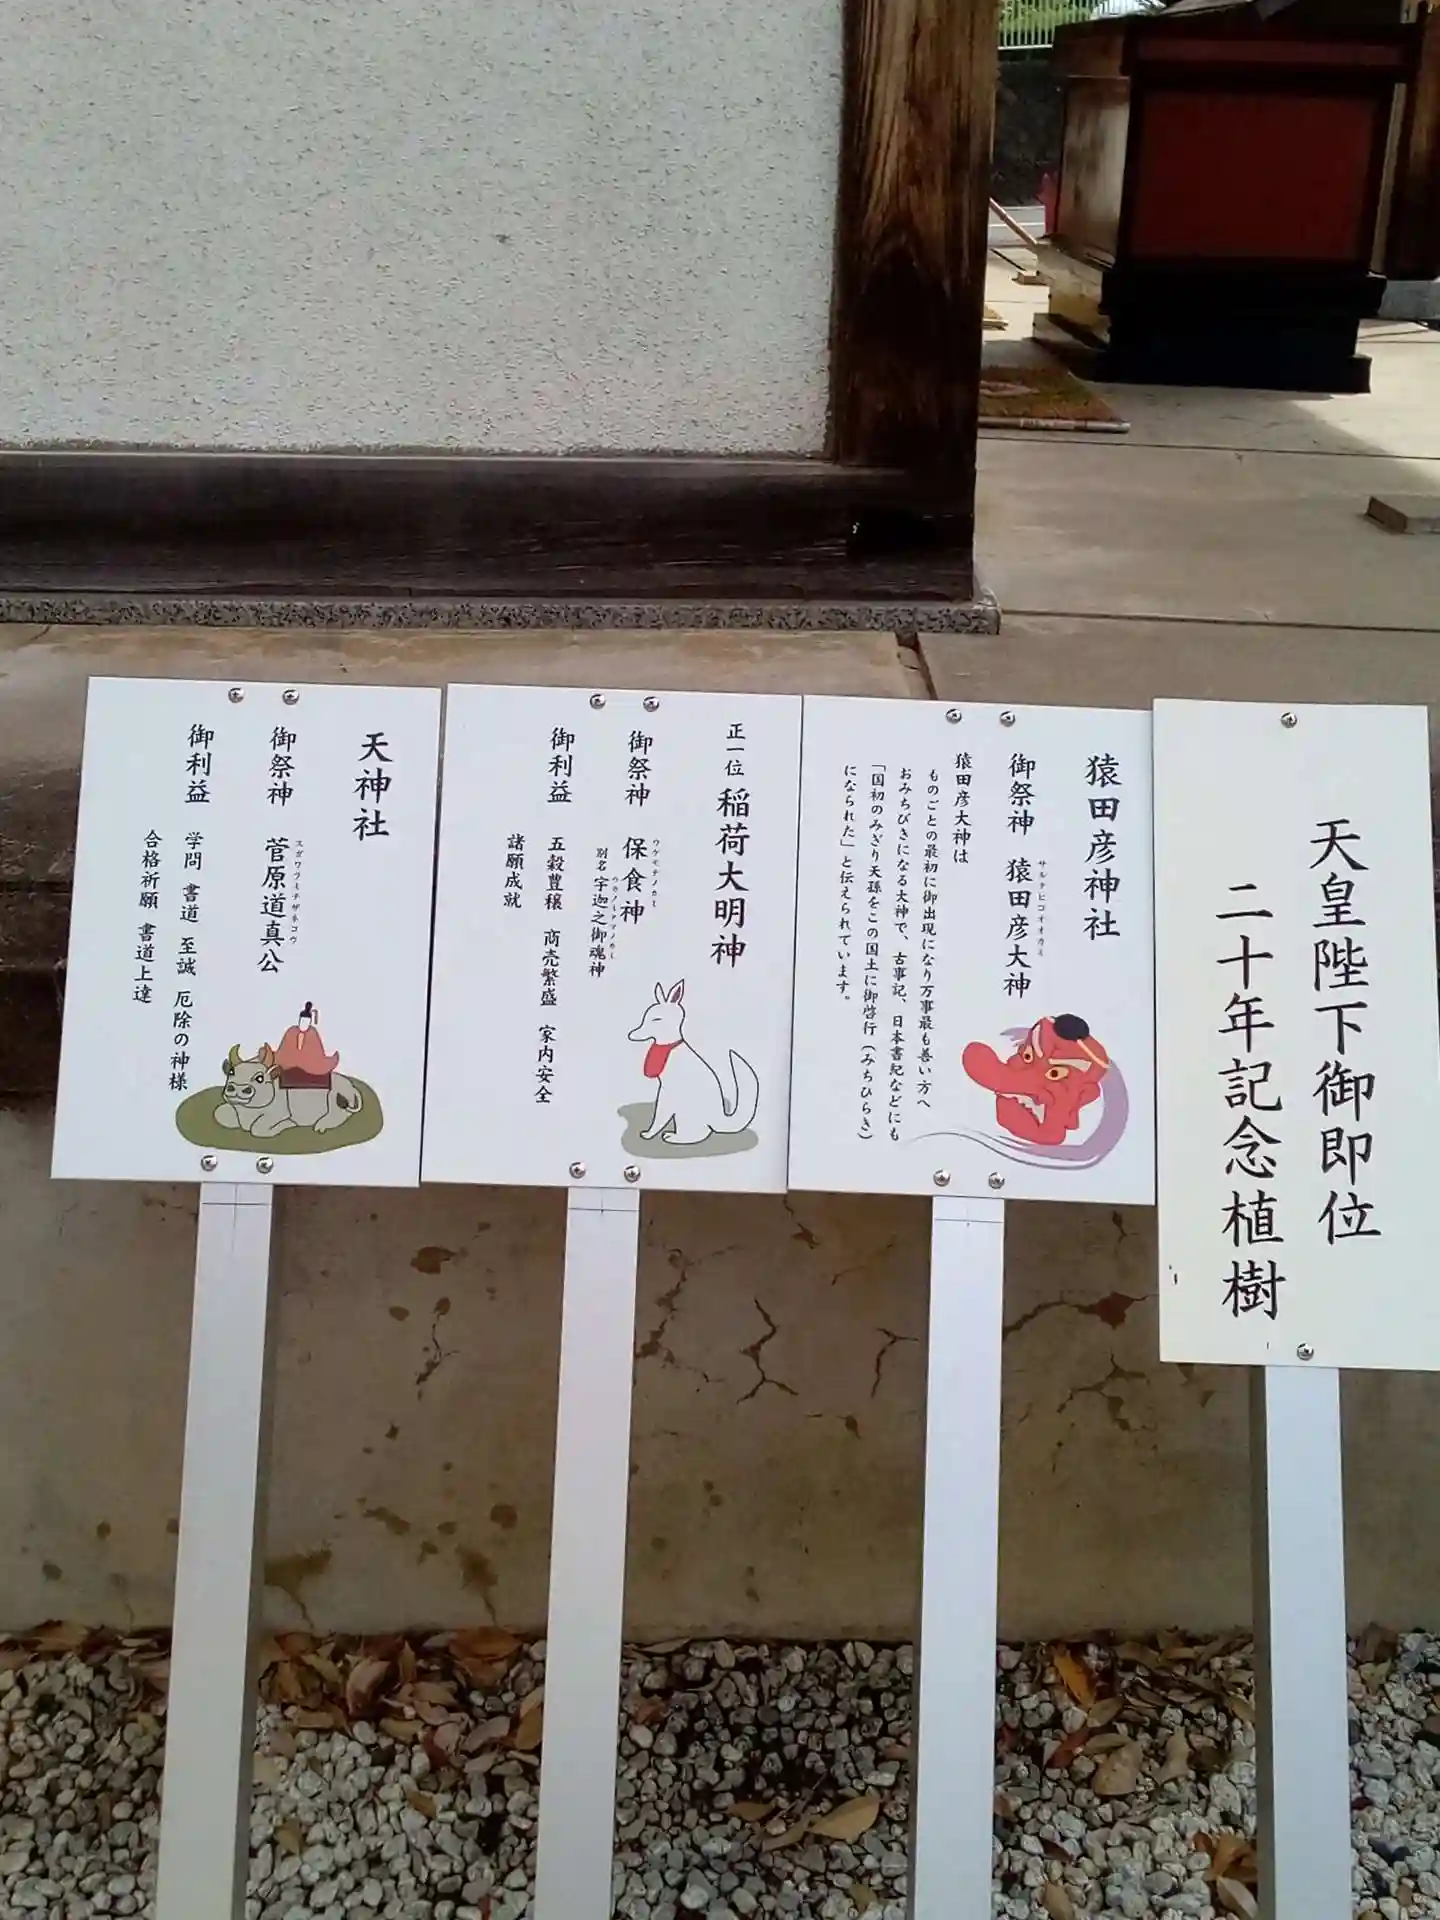 天皇陛下御即位
二十年記念植樹
猿田彦神社
御祭神 猿田彦大神
サルタヒコオオカミ
猿田彦大神は
ものごとの最初に御出現になり万事最も善い方へ
おみちびきになる大神で、古事記、日本書紀などにも
「国初のみぎり天孫をこの国土に御啓行(みちひらき)
になられた」と伝えられています。
正一位 稲荷大明神
御祭神 保食神
ウケモチノカミ
別名 宇迦之御魂神
ウカノミタマノカミ
御利益 五穀豊穣 商売繁盛 家内安全
諸願成就
天神社
御祭神 菅原道真公
スガワラミチザネコウ
御利益 学問 書道 至誠 厄除の神様
合格祈願 書道上達